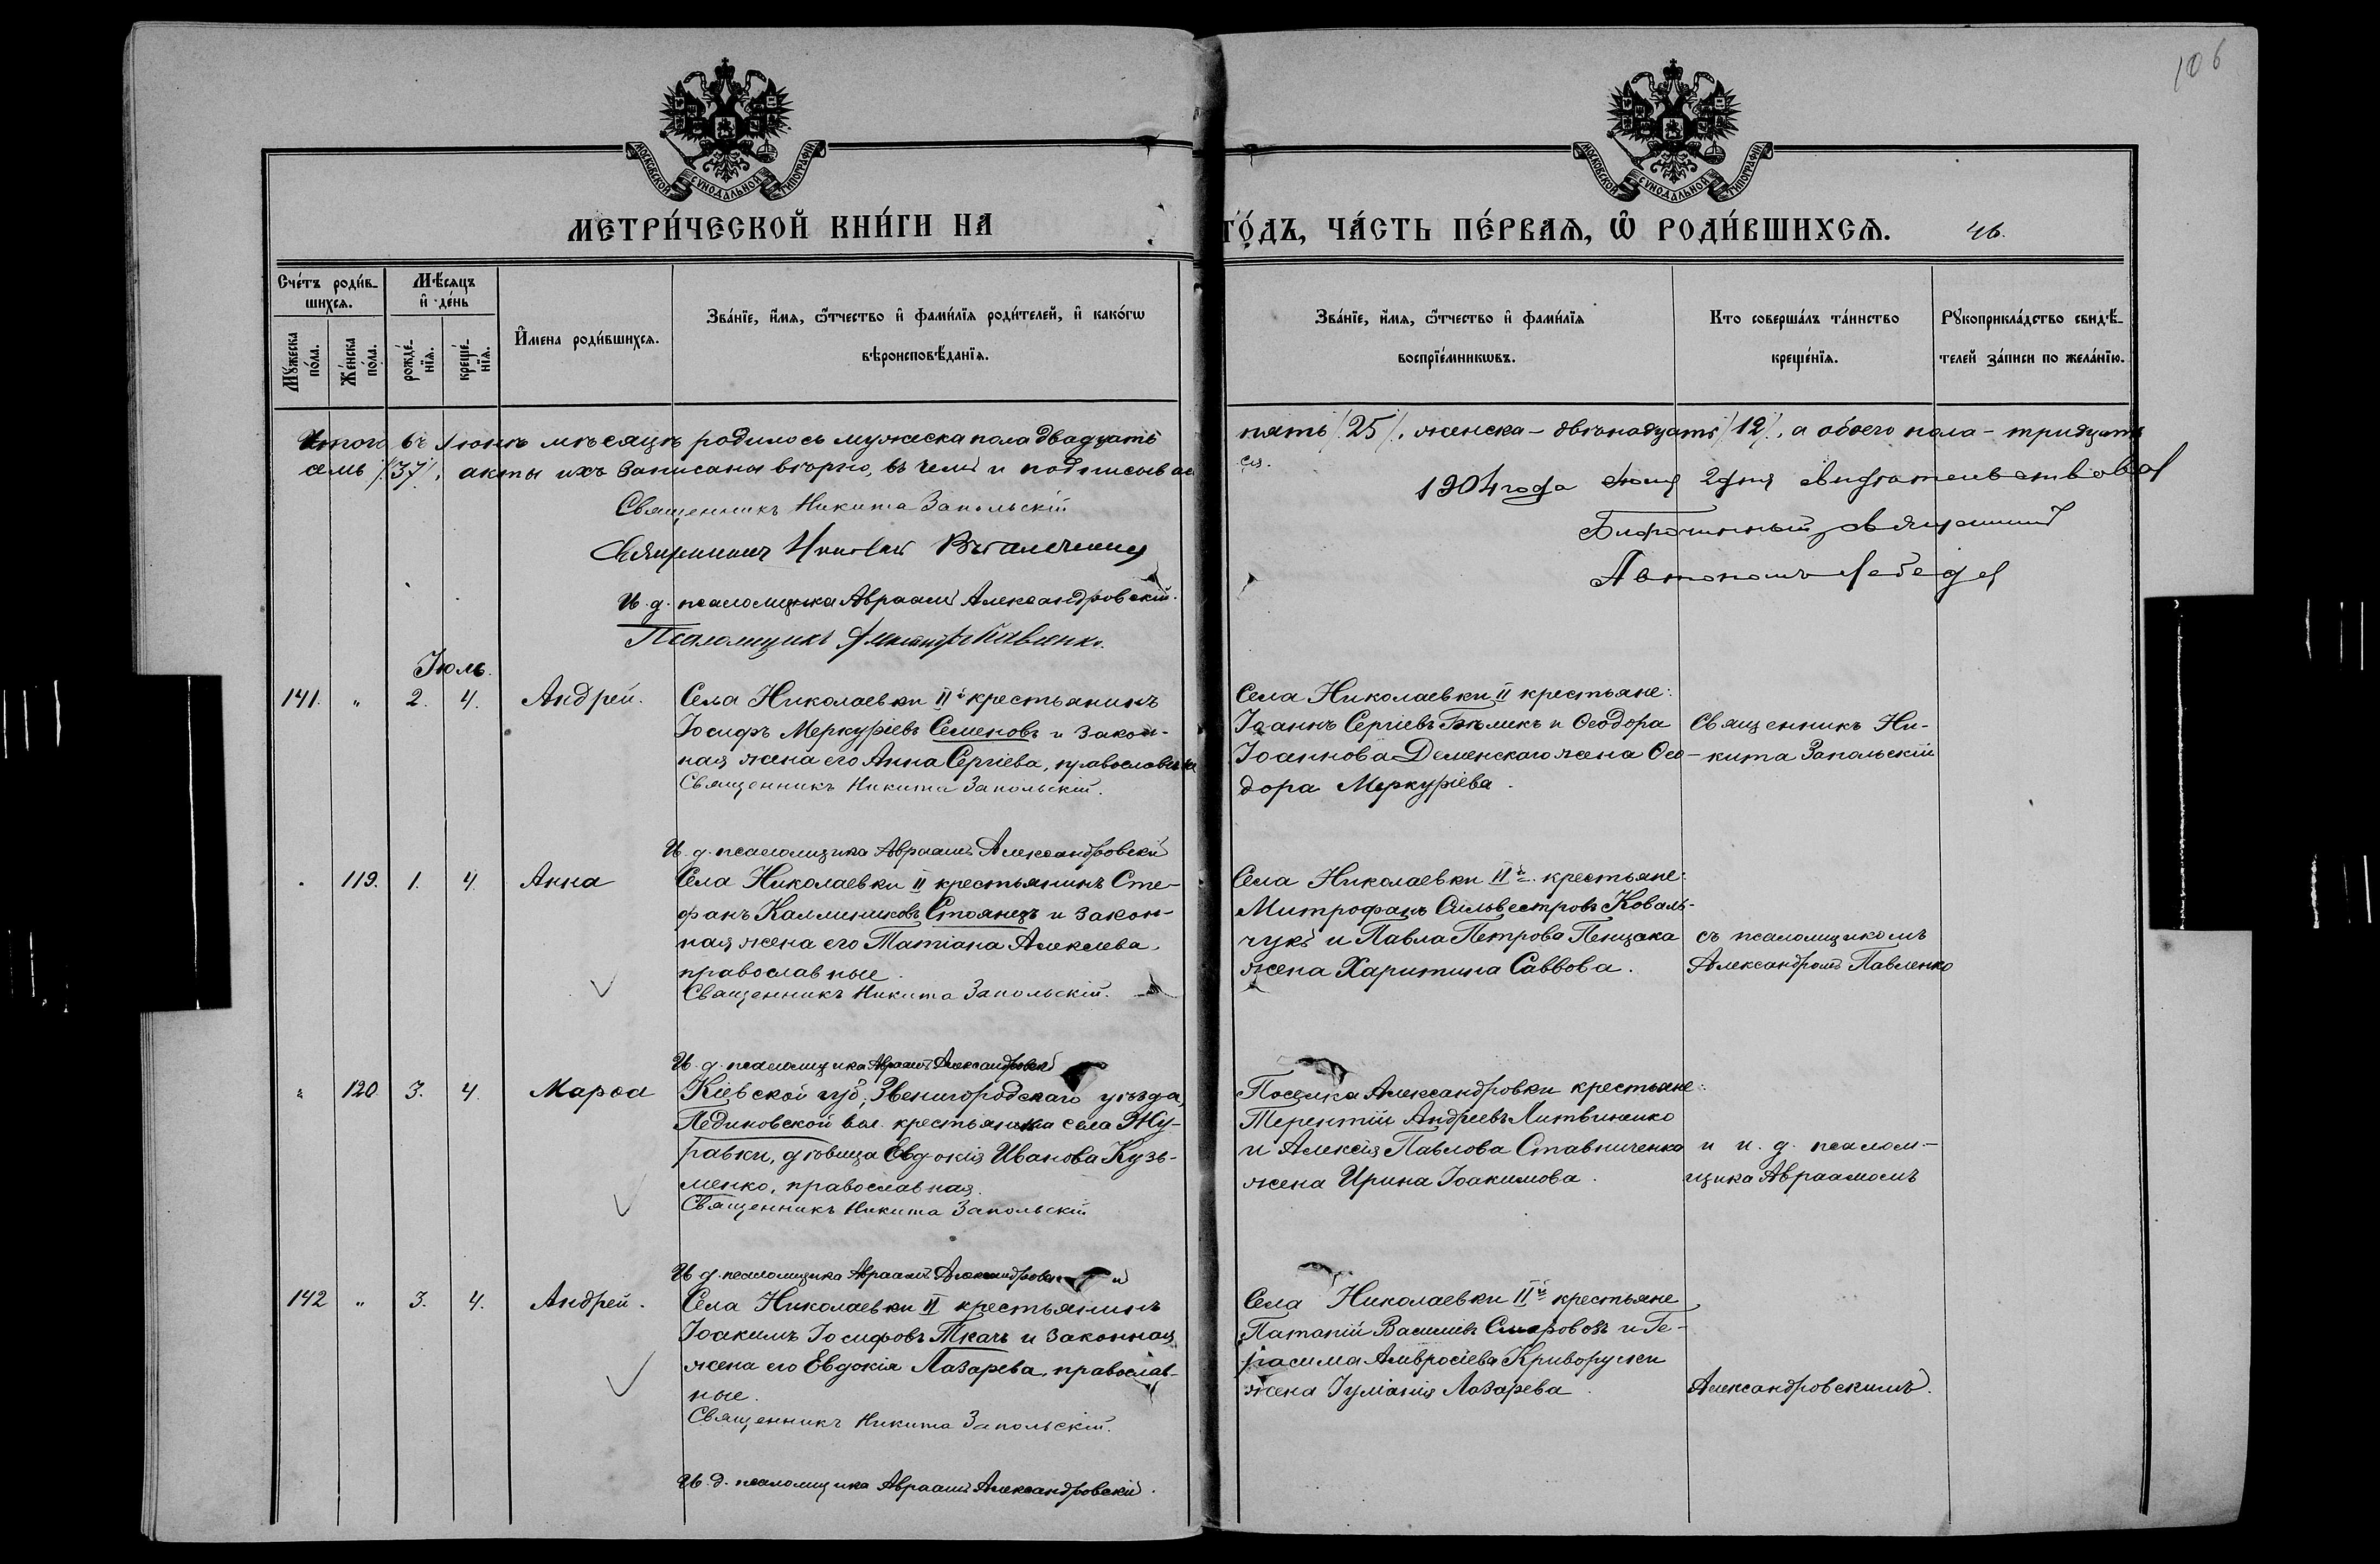 106
МОСКОВСКОЙ СУНОДАЛЬНОЙ ТИПОГРАФІИ
МОСКОВСКОЙ СУНОДАЛЬНОЙ ТИПОГРАФІИ
МЕТРИ́ЧЕСКОЙ КНИ́ГИ НА
ГО́ДЪ, ЧА́СТЬ ПЕ́РВАѦ, Ѿ РОДИ́ВШИХСѦ. 46.
Сче́тъ роди́в-
шихсѧ.
Мꙋ́жеска по́ла.
Же́нска по́ла.
Мѣ́сѧцъ
и҆ де́нь
рожде́-нїѧ.
креще́-нїѧ.
И҆мена роди́вшихсѧ.
Зва́нїе, и҆́мѧ, ѻ҆́тчество и҆ фами́лїѧ роди́телей, и҆ како́гѡ
вѣроисповѣ́данїѧ.
Зва́нїе, и҆́мѧ, ѻ҆́тчество и҆ фами́лїѧ
воспрїе́мникѡвъ.
Кто соверша́лъ та́инство
креще́нїѧ.
Рꙋкоприкла́дство свидѣ́-
телей за́писи по жела́нїю.
Итого въ Іюнѣ мѣсяцѣ родилось мужеска пола двадцать
пять /25/, женска – двѣнадцать /12/, а обоего пола – тридцать
семь /37/, акты ихъ записаны вѣрно, въ чемъ и подписываем
ся.
Священникъ Никита Запольскій
Священникъ
И. д. псаломщика Авраамъ Александровскій.
Псаломщикъ Александръ Павленко.
1904 года Іюля 2 дня свидѣтельствовалъ
Благочинный Священникъ
Автономъ Лебедев
Іюль.
141. " 2. 4. Андрей.
Села Николаевки II й крестьянинъ
Іосифъ Меркуріевъ Семеновъ и закон-
ная жена его Анна Сергіева, православные
Священникъ Никита Запольскій.
И. д. псаломщика Авраамъ Александровскій
Села Николаевки II крестьяне:
Іоаннъ Сергіевъ Бѣликъ и Ѳеодора
Іоаннова Деменскаго жена Ѳео-
дора Меркуріева.
Священникъ Ни-
кита Запольскій
" 119. 1. 4. Анна
Села Николаевки II крестьянинъ Сте-
фанъ Каллиниковъ Стоянецъ и закон-
ная жена его Татіана Алексіева,
православные.
Священникъ Никита Запольскій.
И. д. псаломщика Авраамъ Александровскій
Села Николаевки II й крестьяне:
Митрофанъ Сильвестровъ Коваль-
чукъ и Павла Петрова Пенцака
жена Харитина Саввова.
съ псаломщикомъ
Александромъ Павленко
" 120. 3. 4. Марѳа
Кіевской губ., Звенигородскаго уѣзда,
вол. крестьянка села Жу-
равки, дѣвица Евдокія Иванова Кузь-
менко, православная.
Священникъ Никита Запольскій
И. д. псаломщика Авраамъ Александровскій
Поселка Александровки крестьяне:
Терентій Андреевъ Литвиненко
и Алексія Павлова Ставниченко
жена Ирина Іоакимова.
и и. д. псалом-
щика Авраамомъ
142 " 3. 4. Андрей.
Села Николаевки II крестьянинъ
Іоакимъ Іосифовъ Ткачъ и законная
жена его Евдокія Лазарева, православ-
ные.
Священникъ Никита Запольскій.
И. д. псаломщика Авраамъ Александровскій.
Села Николаевки II й крестьяне
Патапій Василіевъ и Ге-
расима Амвросіева Криворучки
жена Іуліанія Лазарева.
Александровскимъ.